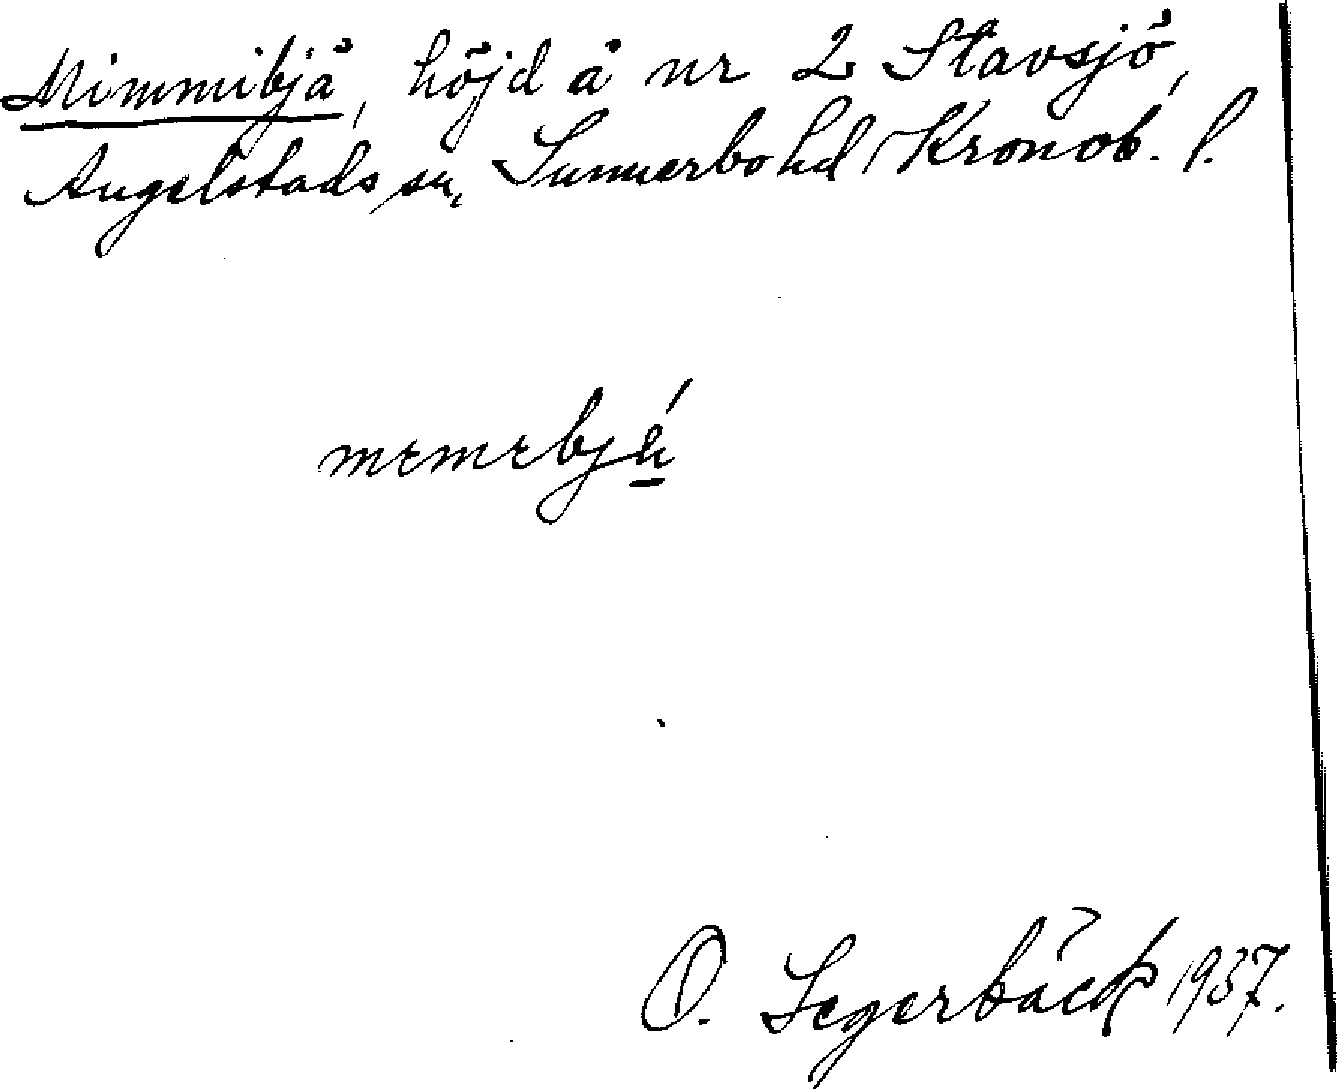 Mimmibjä, höjd å nr 2 Stavsjö,
Angelstads sn, Sunnerbo hd, Kronob. l.
O. Segerbäck 1937.